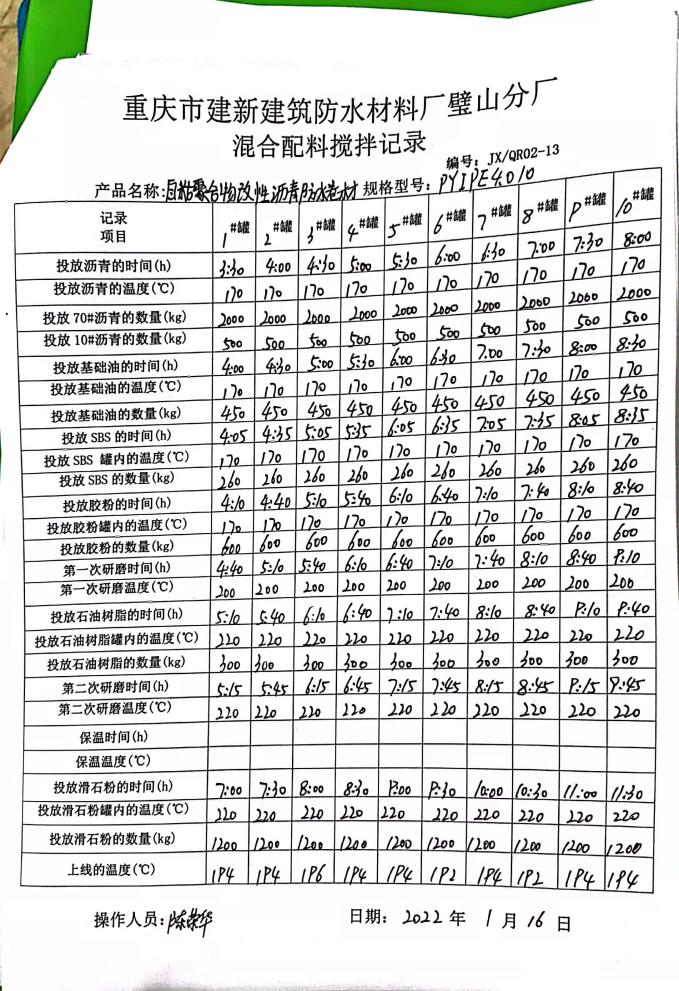 重庆市建新建筑防水材料厂璧山分厂
混合配料搅拌记录
编号：JX/QR02-13
产品名称:自粘聚合物改性沥青防水卷材 规格型号：PYIPE4.010
记录 项目 1#罐 2#罐 3#罐 4#罐 5#罐 6#罐 7#罐 8#罐 9#罐 10#罐
投放沥青的时间(h) 3:30 4:00 4:30 5:00 5:30 6:00 6:30 7:00 7:30 8:00
投放沥青的温度(℃) 170 170 170 170 170 170 170 170 170 170
投放 70#沥青的数量(kg) 2000 2000 2000 2000 2000 2000 2000 2000 2000 2000
投放 10#沥青的数量(kg) 500 500 500 500 500 500 500 500 500 500
投放基础油的时间(h) 4:00 4:30 5:00 5:30 6:00 6:30 7:00 7:30 8:00 8:30
投放基础油的温度(℃) 170 170 170 170 170 170 170 170 170 170
投放基础油的数量(kg) 450 450 450 450 450 450 450 450 450 450
投放 SBS 的时间(h) 4:05 4:35 5:05 5:35 6:05 6:35 7:05 7:35 8:05 8:35
投放 SBS 罐内的温度(℃) 170 170 170 170 170 170 170 170 170 170
投放 SBS 的数量(kg) 260 260 260 260 260 260 260 260 260 260
投放胶粉的时间(h) 4:10 4:40 5:10 5:40 6:10 6:40 7:10 7:40 8:10 8:40
投放胶粉罐内的温度(℃) 170 170 170 170 170 170 170 170 170 170
投放胶粉的数量(kg) 600 600 600 600 600 600 600 600 600 600
第一次研磨时间(h) 4:40 5:10 5:40 6:10 6:40 7:10 7:40 8:10 8:40 9:10
第一次研磨温度(℃) 200 200 200 200 200 200 200 200 200 200
投放石油树脂的时间(h) 5:10 5:40 6:10 6:40 7:10 7:40 8:10 8:40 9:10 9:40
投放石油树脂罐内的温度(℃) 220 220 220 220 220 220 220 220 220 220
投放石油树脂的数量(kg) 300 300 300 300 300 300 300 300 300 300
第二次研磨时间(h) 5:15 5:45 6:15 6:45 7:15 7:45 8:15 8:45 9:15 9:45
第二次研磨温度(℃) 220 220 220 220 220 220 220 220 220 220
保温时间(h)
保温温度(℃)
投放滑石粉的时间(h) 7:00 7:30 8:00 8:30 9:00 9:30 10:00 10:30 11:00 11:30
投放滑石粉罐内的温度(℃) 220 220 220 220 220 220 220 220 220 220
投放滑石粉的数量(kg) 1200 1200 1200 1200 1200 1200 1200 1200 1200 1200
上线的温度(℃) 194 194 196 194 194 192 194 192 194 194
操作人员:陈荣华 日期：2022 年 1 月 16 日